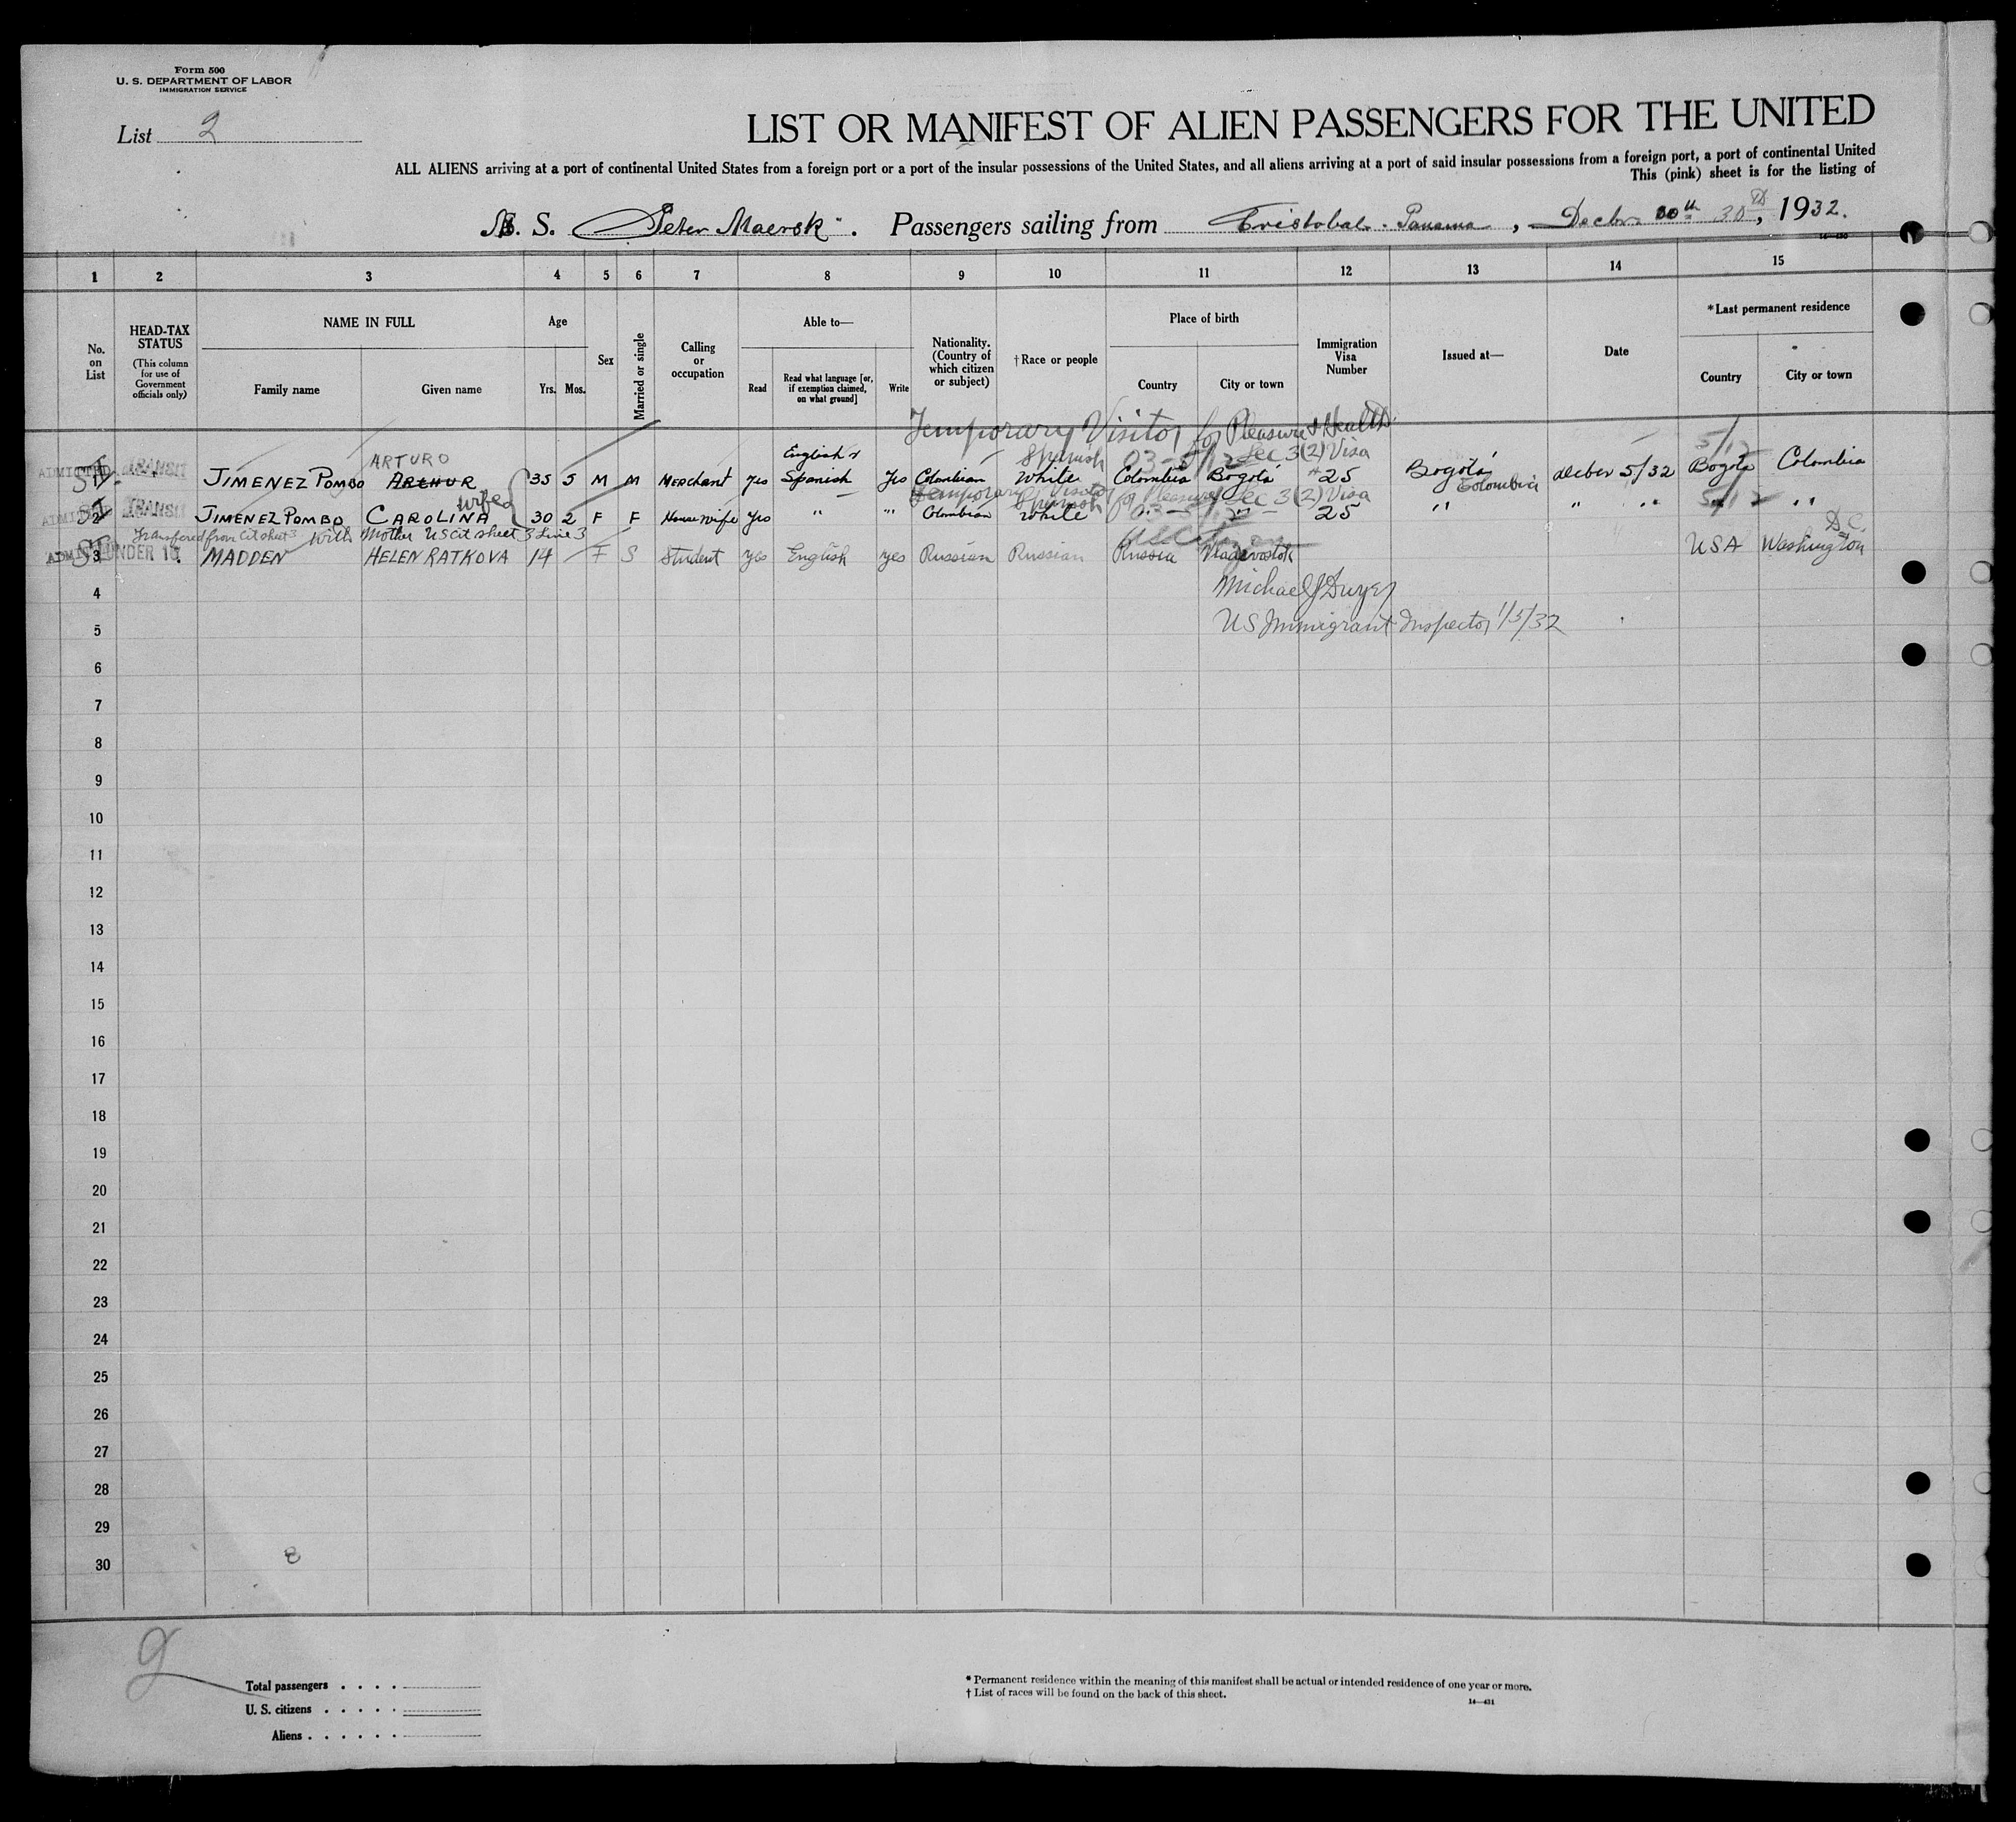 Form 500
U. S. DEPARTMENT OF LABOR
IMMIGRATION SERVICE
List 2
LIST OR MANIFEST OF ALIEN PASSENGERS FOR THE UNITED
ALL ALIENS arriving at a port of continental United States from a foreign port or a port of the insular possessions of the United States, and all aliens arriving at a port of said insular possessions from a foreign port, a port of continental United
This (pink) sheet is for the listing of
S. Peter Maersk. Passengers sailing from Cristobal. Panama, Decbr. 30th 30th, 1932.
1 2 3 4 5 6 7 8 9 10 11 12 13 14 15
No. on List
HEAD-TAX STATUS (This column for use of Government officials only)
NAME IN FULL
Family name Given name
Age
Yrs. Mos.
Sex
Married or single
Calling or occupation
Able to—
Read Read what language [or, if exemption claimed, on what ground] Write
Nationality. (Country of which citizen or subject)
†Race or people
Place of birth
Country City or town
Immigration Visa Number
Issued at—
Date
*Last permanent residence
Country City or town
Temporary Visitor for Pleasure & Health
ARTURO English & Spanish 03-5/12 Sec 3(2) Visa 5/12
1 TRANSIT JIMENEZ POMBO ARTHUR 35 5 M M Merchant yes Spanish Yes Colombian White Colombia Bogotá #25 Bogotá Colombia Decber 5/32 Bogotá Colombia
wife Temporary Visitor for Pleasure Spanish Sec 3(2) Visa
2 TRANSIT JIMENEZ POMBO CAROLINA 30 2 F F Housewife yes " " Colombian White " " 25 " " " " "
Transfered from Cit sheet 3 with Mother US cit sheet 3 Line 3 US Citizen D.C.
3 UNDER 16 MADDEN HELEN RATKOVA 14 F S Student yes English yes Russian Russian Russia Vladivostok USA Washington
4 Michael J Dwyer
5 US Immigrant Inspector 1/5/32
6
7
8
9
10
11
12
13
14
15
16
17
18
19
20
21
22
23
24
25
26
27
28
29
30
2
Total passengers
U. S. citizens
Aliens
* Permanent residence within the meaning of this manifest shall be actual or intended residence of one year or more.
† List of races will be found on the back of this sheet.
14—431